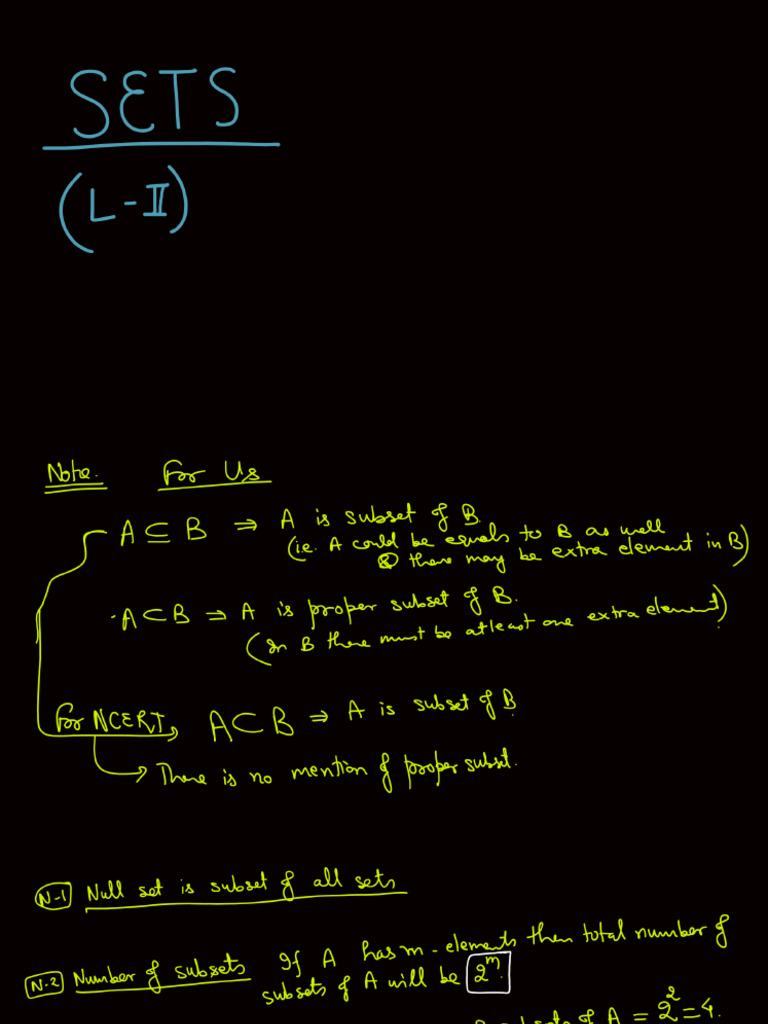 SETS
(L-II)
Note. For Us
A ⊆ B ⇒ A is subset of B.
(ie. A could be equals to B as well
& there may be extra element in B)
A ⊂ B ⇒ A is proper subset of B.
(In B there must be atleast one extra element)
For NCERT, A ⊂ B ⇒ A is subset of B.
There is no mention of proper subset.
N-1 Null set is subset of all sets
N-2 Number of subsets If A has m-elements then total number of
subsets of A will be 2^m
subsets of A = 2^2 = 4.